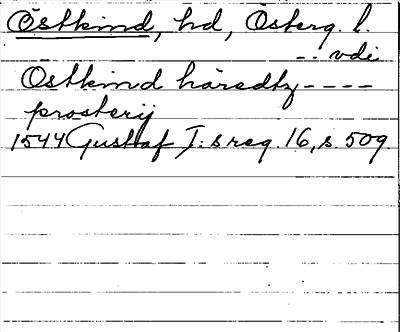 Östkind, hd, Österg. l.
-- vdi
Östkind häredtz ----
prosterij
1544 Gustaf I:s reg. 16, s. 509.